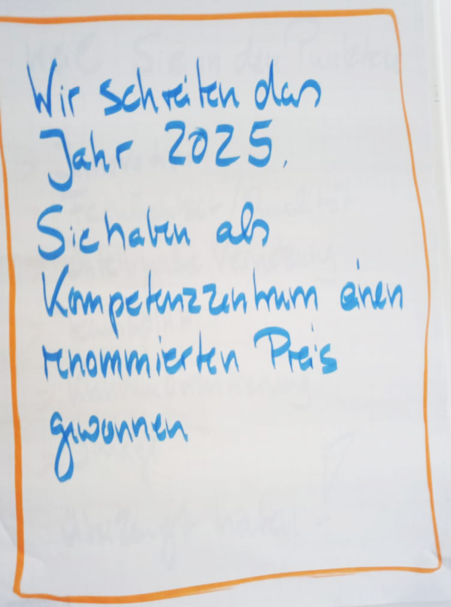 Wir schreiben das
Jahr 2025.
Sie haben als
Kompetenzzentrum einen
renommierten Preis
gewonnen